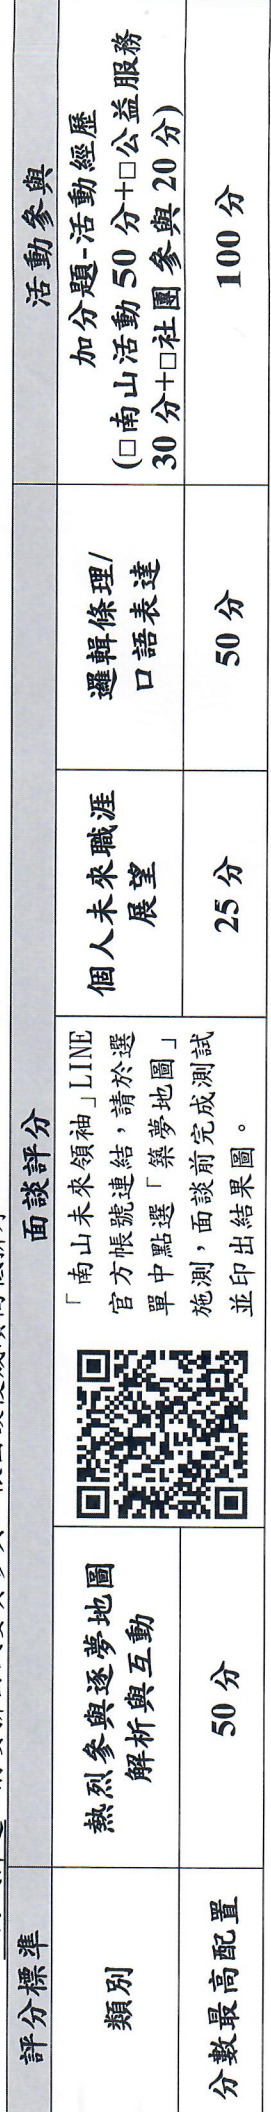 評分標準
面談評分
活動參與
類別
熱烈參與逐夢地圖
解析與互動
「南山未來領袖」LINE
官方帳號連結，請於選
單中點選「築夢地圖」
施測，面談前完成測試
並印出結果圖。
個人未來職涯
展望
邏輯條理/
口語表達
加分題-活動經歷
(□南山活動 50 分+□公益服務
30 分+□社團 參與 20 分)
分數最高配置
50 分
25 分
50 分
100 分